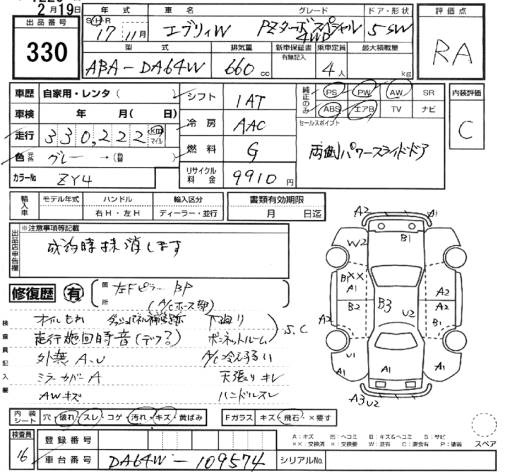 2月19日
出品番号
330
年式 車名 グレード ドア・形状
S H R 17年 11月 エブリィW PZターボスペシャル 4WD 5 SW
型式 排気量 新車保証書 有無記入 乗車定員 最大積載量
ABA-DA64W 660 cc 4人 kg
評価点
RA
車歴 自家用・レンタ( )
車検 年 月( 日)
走行 330,222 Km マイル
色 グレー→
カラーNo ZY4
シフト 1AT
冷房 AAC
燃料 G
リサイクル料金 9910円
純正のみ PS PW AW SR
ABS エアB TV ナビ
セールスポイント
両側パワースライドドア
内装評価
C
輸入車 モデル年式 ハンドル 輸入区分
年 右H・左H ディーラー・並行
書類有効期限
月 日迄
出品店申告欄
※注意事項等記載
成約時抹消します
修復歴 有 箇所 左Fピラー BP
(A/Cホース部)
検査員記入欄
オイルもれ 下廻り
ボンネットルーム S,C
外無 A.U A/C冷えよわい
ミラーカバーA 天張りキレ
AWキズ ハンドルスレ
A2 A1 B1 W2 A1 BXX A1 B2 B3 U2 A2 A2 A2 B1 U1 A1 A1 A3U2
内装シート 穴・破れ・スレ・コゲ・汚れ・キズ・黄ばみ Fガラス キズ・飛石・×要す
A:キズ U:ヘコミ B:キズ&ヘコミ S:サビ
スペア
検査員 16
登録番号
車台番号 DA64W-109574 シリアルNo.